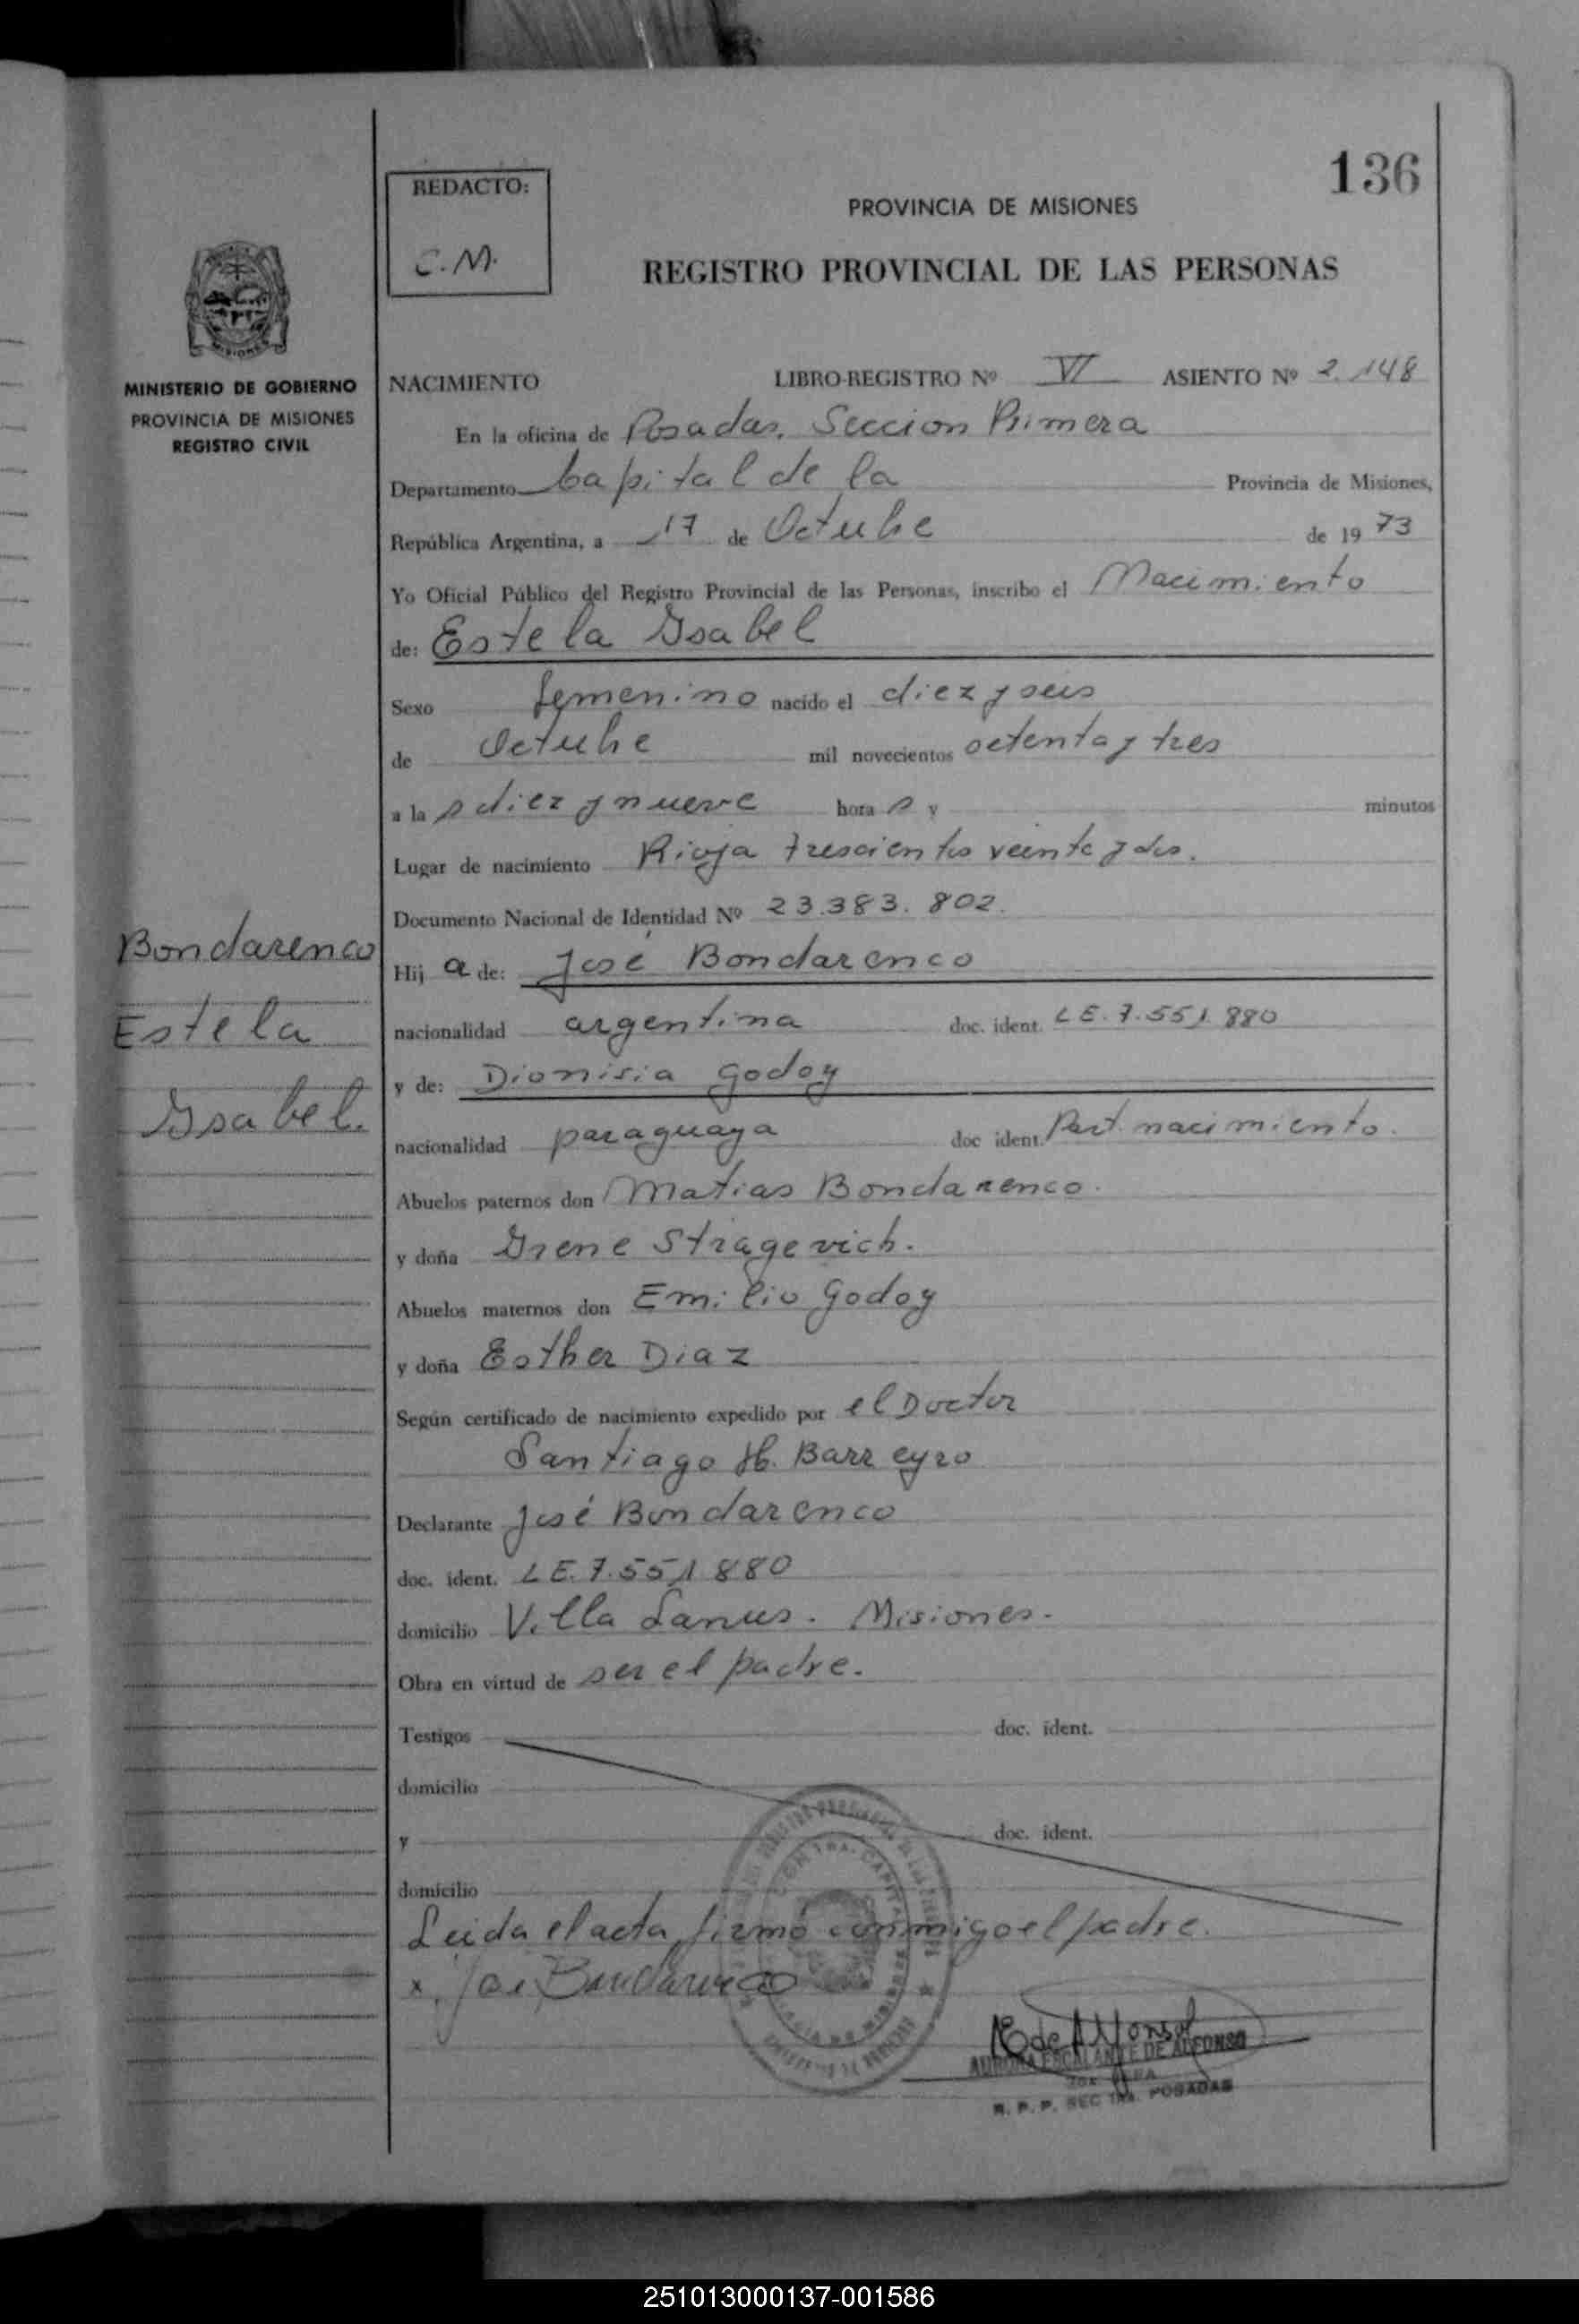 136
REDACTO:
C.M.
PROVINCIA DE MISIONES
REGISTRO PROVINCIAL DE LAS PERSONAS
MISIONES
MINISTERIO DE GOBIERNO
PROVINCIA DE MISIONES
REGISTRO CIVIL
NACIMIENTO LIBRO-REGISTRO Nº VI ASIENTO Nº 2.148
En la oficina de Posadas, Seccion Primera
Departamento Capital de la Provincia de Misiones,
República Argentina, a 17 de Octubre de 19 73
Yo Oficial Público del Registro Provincial de las Personas, inscribo el Nacimiento
de: Estela Isabel
Sexo femenino nacido el diez y seis
de Octubre mil novecientos setenta y tres
a la s diez y nueve hora s y minutos
Lugar de nacimiento Rioja trescientos veinte y dos.
Documento Nacional de Identidad Nº 23.383.802.
Bondarenco
Estela
Isabel.
Hij a de: José Bondarenco
nacionalidad argentina doc. ident. LE. 7.551.880
y de: Dionisia Godoy
nacionalidad paraguaya doc ident. Part. nacimiento.
Abuelos paternos don Matias Bondarenco.
y doña Irene Stragevich.
Abuelos maternos don Emilio Godoy
y doña Esther Diaz
Según certificado de nacimiento expedido por el Doctor
Santiago H. Barreyro
Declarante José Bondarenco
doc. ident. LE. 7.551.880
domicilio Villa Lanus. Misiones.
Obra en virtud de ser el padre.
Testigos doc. ident.
domicilio
y doc. ident.
domicilio
Leida el acta, firmó conmigo el padre.
x. José Bondarenco
AURORA ESCALANTE DE ALFONSO
R. P. P. SEC 1ra. POSADAS
251013000137-001586